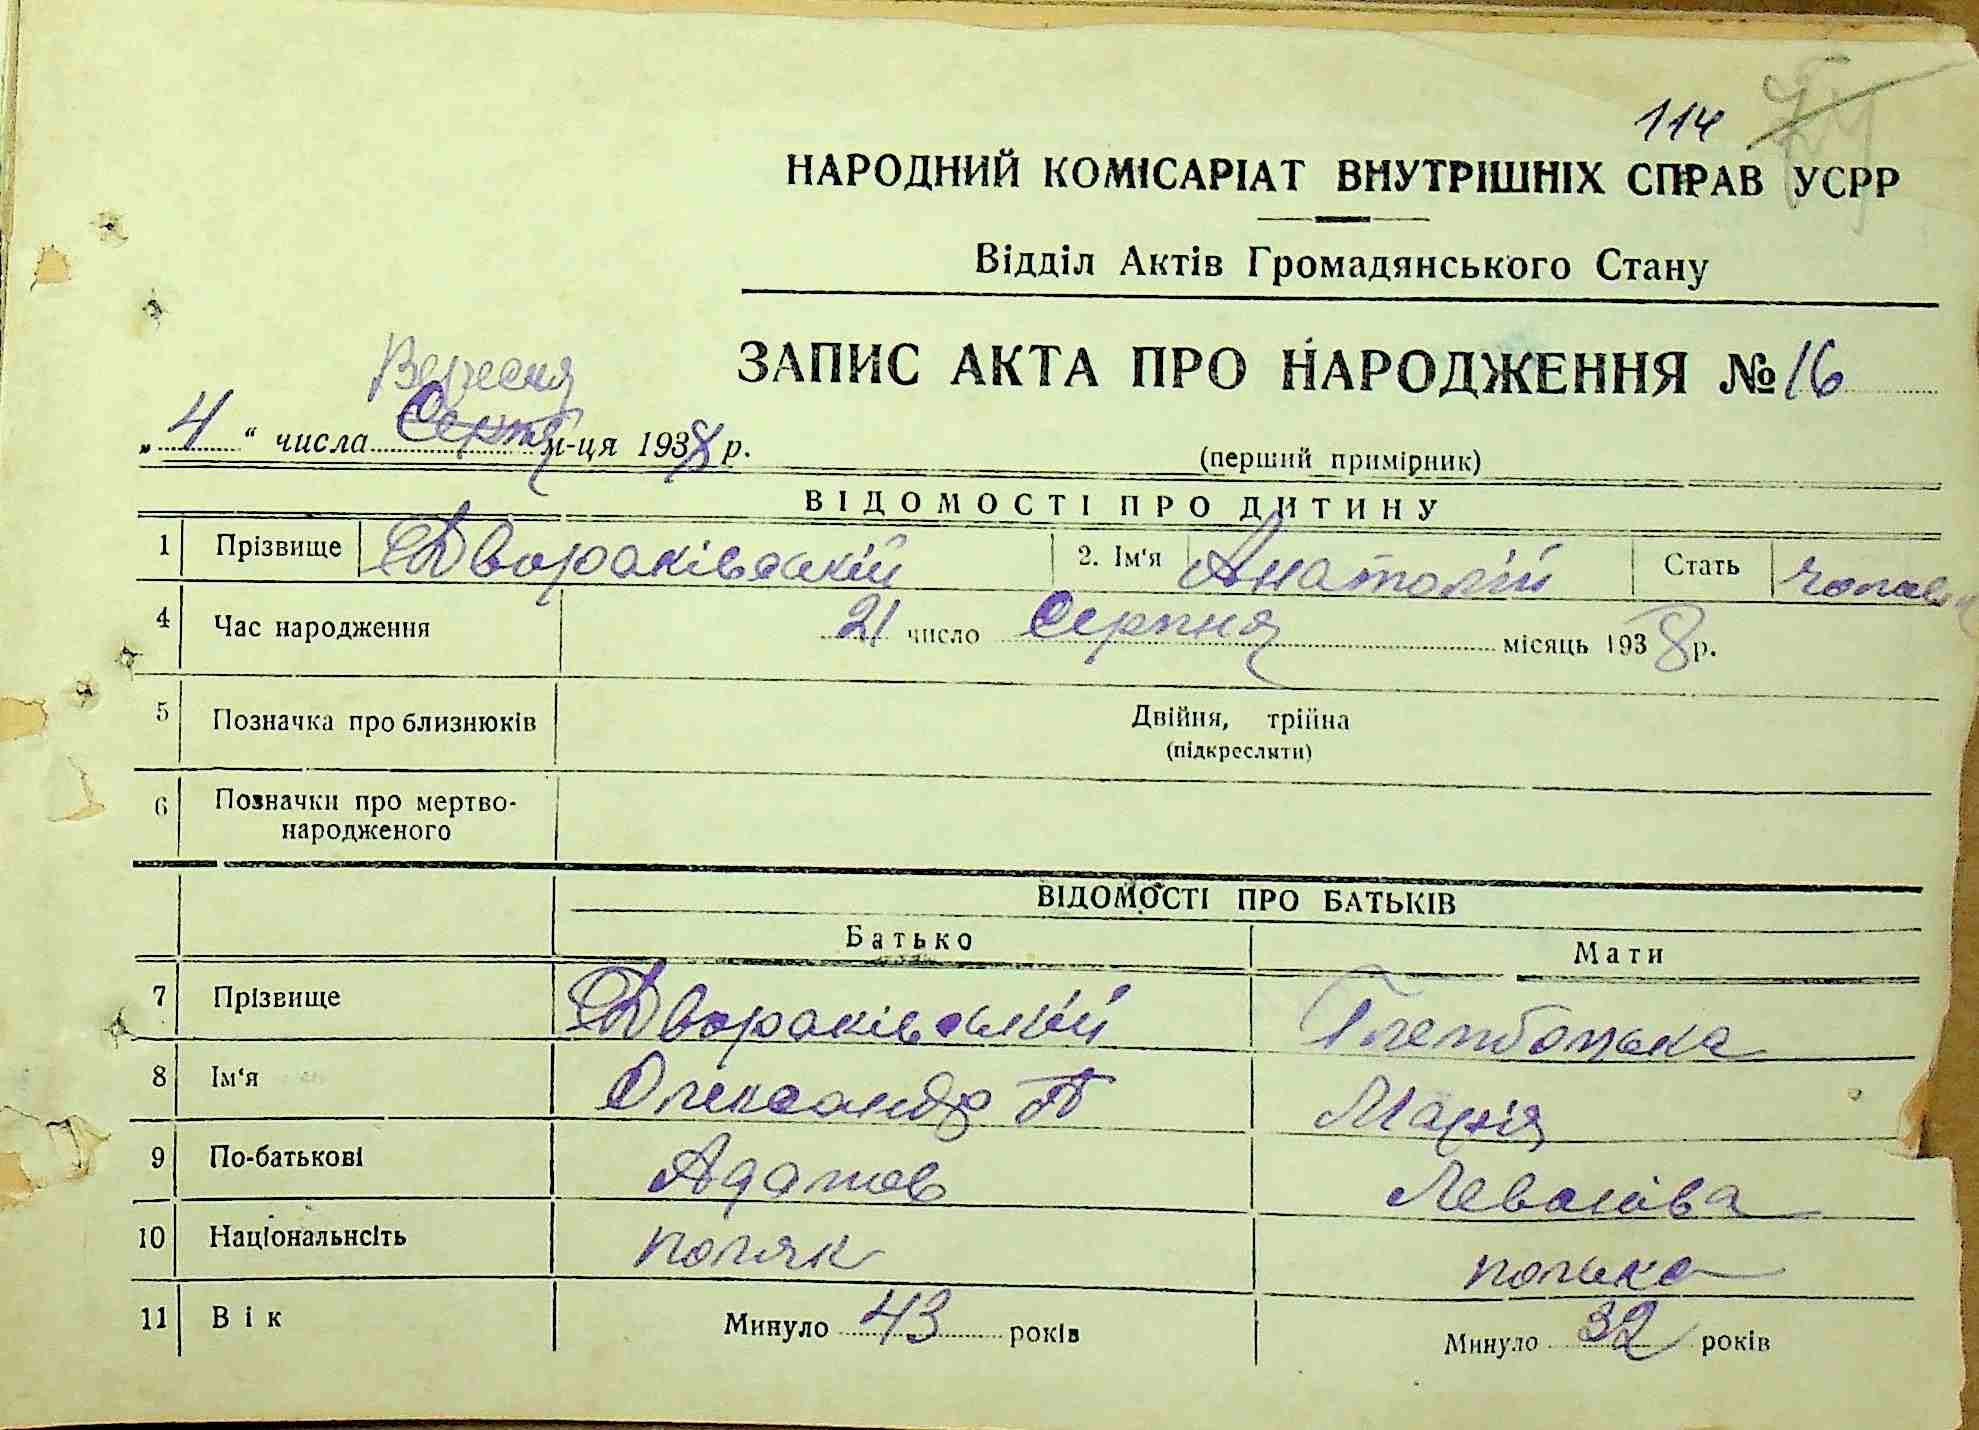 114
НАРОДНИЙ КОМІСАРІАТ ВНУТРІШНІХ СПРАВ УСРР
Відділ Актів Громадянського Стану
ЗАПИС АКТА ПРО НАРОДЖЕННЯ № 16
Вересня
„ 4 “ числа Серпня м-ця 1938 р.
(перший примірник)
ВІДОМОСТІ ПРО ДИТИНУ
1 Прізвище Двораківський 2. Ім'я Анатолій Стать чоловіч
4 Час народження 21 число Серпня місяць 1938 р.
5 Позначка про близнюків Двійня, трійна
(підкреслити)
6 Позначки про мертво-
народженого
ВІДОМОСТІ ПРО БАТЬКІВ
Батько Мати
7 Прізвище Двораківський
8 Ім'я Олександр Марія
9 По-батькові Адамов
10 Національнсіть поляк полька
11 Вік Минуло 43 років Минуло 32 років